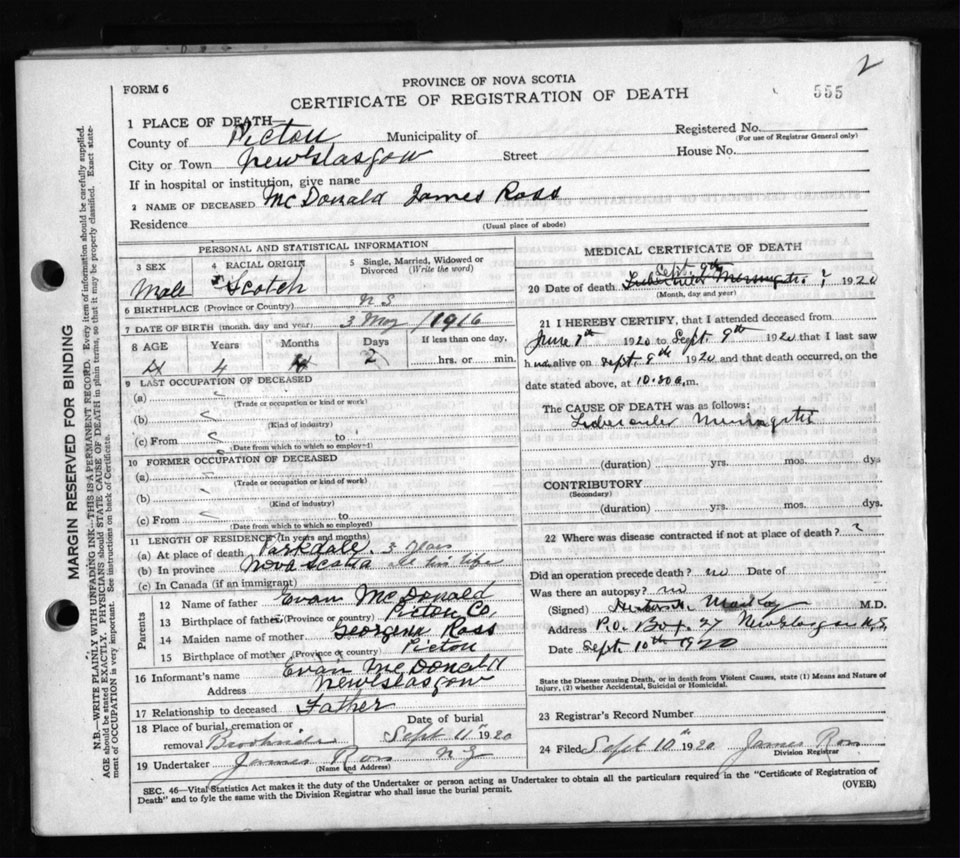 2
FORM 6
PROVINCE OF NOVA SCOTIA
CERTIFICATE OF REGISTRATION OF DEATH
555
1 PLACE OF DEATH—
County of Pictou Municipality of Registered No.
(For use of Registrar General only)
City or Town New Glasgow Street House No.
If in hospital or institution, give name
2 NAME OF DECEASED McDonald James Ross
Residence
(Usual place of abode)
PERSONAL AND STATISTICAL INFORMATION
3 SEX 4 RACIAL ORIGIN 5 Single, Married, Widowed or Divorced (Write the word)
Male Scotch
6 BIRTHPLACE (Province or Country) N S
7 DATE OF BIRTH (month, day and year) 3 May 1916
8 AGE Years Months Days If less than one day,
4 4 2 hrs. or min.
9 LAST OCCUPATION OF DECEASED
(a)
(Trade or occupation or kind or work)
(b)
(Kind of industry)
(c) From to
(Date from which to which so employed)
10 FORMER OCCUPATION OF DECEASED
(a)
(Trade or occupation or kind of work)
(b)
(Kind of industry)
(c) From to
(Date from which to which so employed)
11 LENGTH OF RESIDENCE (In years and months)
(a) At place of death Parkdale. 3 years
(b) In province Nova Scotia all his life
(c) In Canada (if an immigrant)
Parents
12 Name of father Evan McDonald
13 Birthplace of father (Province or country) Pictou Co
14 Maiden name of mother Georgena Ross
15 Birthplace of mother (Province or country) Pictou
16 Informant's name Evan McDonald
Address New Glasgow
17 Relationship to deceased Father
18 Place of burial, cremation or removal Date of burial
Sept 11th 1920
19 Undertaker James Ross N.G
(Name and Address)
MEDICAL CERTIFICATE OF DEATH
Sept. 9th
20 Date of death 1920
(Month, day and year)
21 I HEREBY CERTIFY, that I attended deceased from
June 1920 to Sept 9th 1920 that I last saw
him alive on Sept. 9th 1920 and that death occurred, on the
date stated above, at 10.30 a.m.
The CAUSE OF DEATH was as follows:
Tubercular Meningitis
(duration) yrs. mos. dys
CONTRIBUTORY
(Secondary)
(duration) yrs. mos. dys.
22 Where was disease contracted if not at place of death? ?
Did an operation precede death? no Date of
Was there an autopsy? no
(Signed) M.D.
Address P.O. Box 27 New Glasgow N.S.
Date Sept. 10th 1920
State the Disease causing Death, or in death from Violent Causes, state (1) Means and Nature of
Injury, (2) whether Accidental, Suicidal or Homicidal.
23 Registrar's Record Number
24 Filed Sept 10th 1920 James Ross
Division Registrar
SEC. 46—Vital Statistics Act makes it the duty of the Undertaker or person acting as Undertaker to obtain all the particulars required in the "Certificate of Registration of
Death" and to fyle the same with the Division Registrar who shall issue the burial permit.
(OVER)
MARGIN RESERVED FOR BINDING
N.B.—WRITE PLAINLY WITH UNFADING INK—THIS IS A PERMANENT RECORD. Every item of information should be carefully supplied.
AGE should be stated EXACTLY. PHYSICIANS should STATE CAUSE OF DEATH in plain terms, so that it may be properly classified. Exact statement of OCCUPATION is very important. See instructions on back of Certificate.